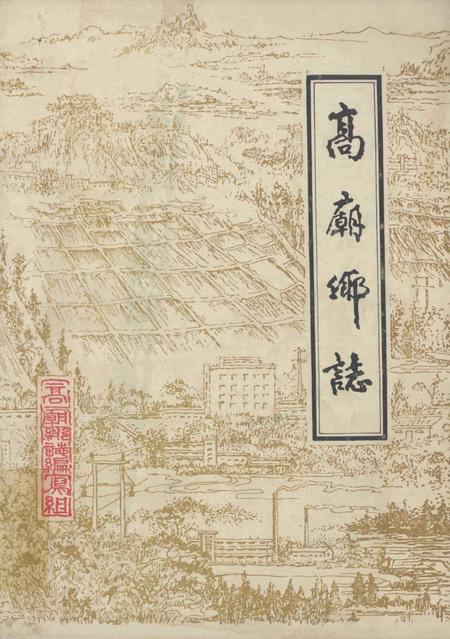 高廟鄉誌
高廟鄉誌編寫組